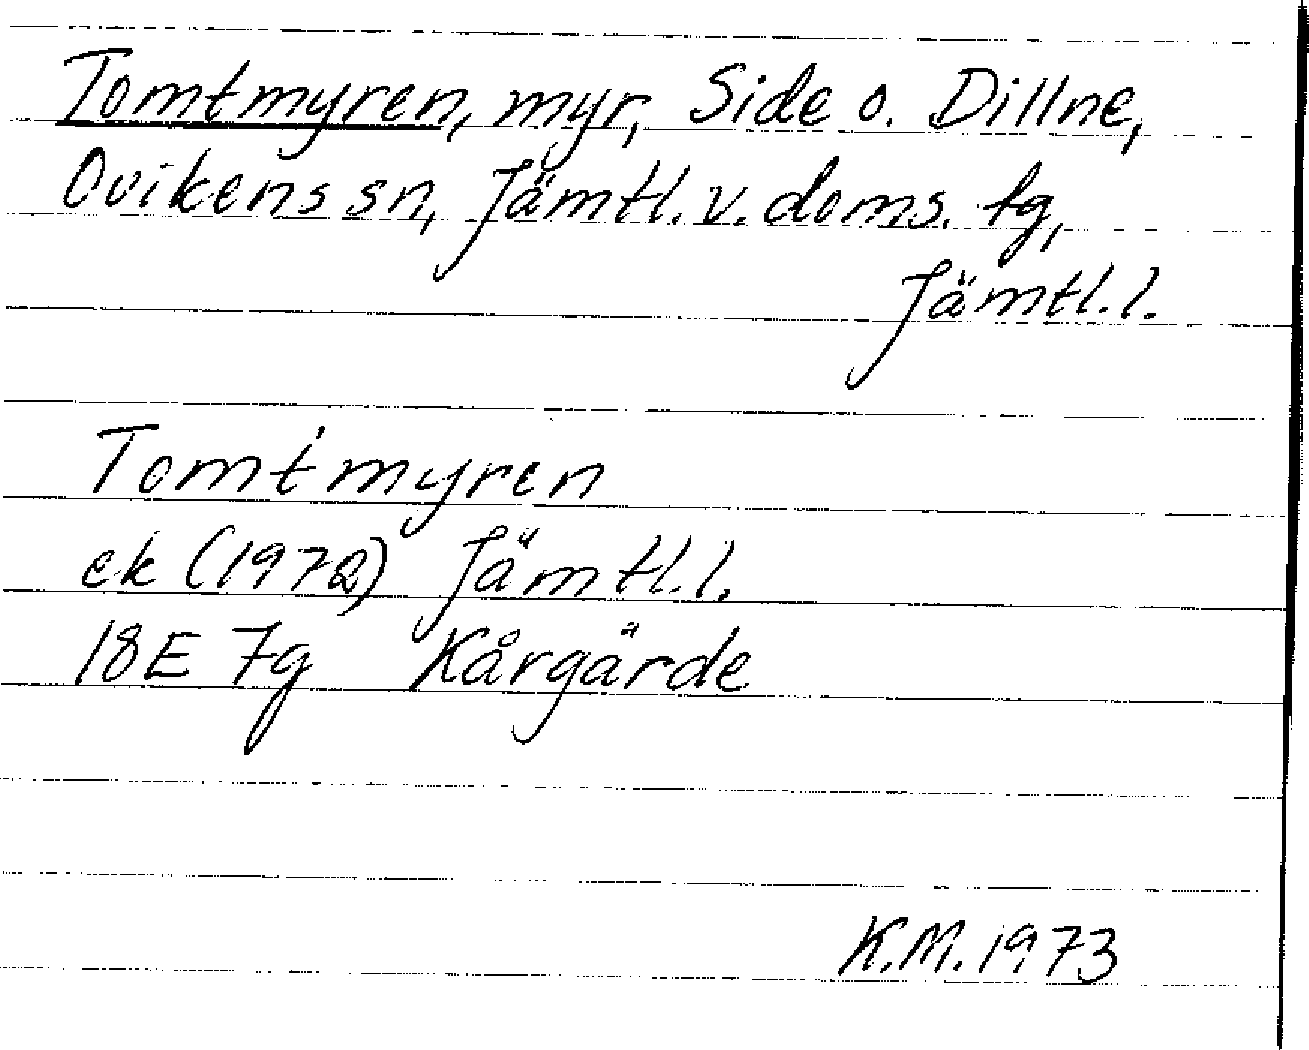 Tomtmyren, myr, Side o. Dillne,
Ovikens sn, Jämtl. v. doms. tg,
Jämtl. l.
Tomt'myren
ek (1972) Jämtl. l.
18E 7g Kårgärde
K.M. 1973